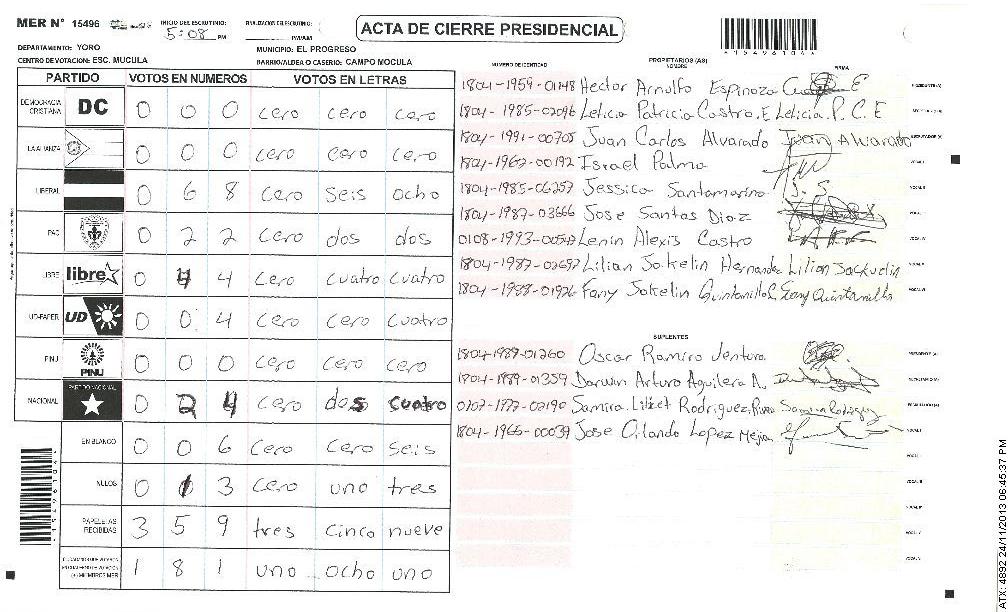 MER N° 15496 INICIO DEL ESCRUTINIO: 5:08 PM FINALIZACION DEL ESCRUTINIO: PM/AM
ACTA DE CIERRE PRESIDENCIAL
1549610
DEPARTAMENTO: YORO MUNICIPIO: EL PROGRESO
CENTRO DE VOTACION: ESC. MUCULA BARRIO/ALDEA O CASERIO: CAMPO MOCULA
PARTIDO VOTOS EN NUMEROS VOTOS EN LETRAS
DEMOCRACIA CRISTIANA DC 0 0 0 cero cero cero
LA ALIANZA 0 0 0 cero cero cero
LIBERAL 0 6 8 cero seis ocho
PAC 0 2 2 cero dos dos
LIBRE libre 0 4 4 cero cuatro cuatro
UD-FAPER UD 0 0 4 cero cero cuatro
PINU PINU 0 0 0 cero cero cero
NACIONAL PARTIDO NACIONAL 0 2 4 cero dos cuatro
EN BLANCO 0 0 6 cero cero seis
NULOS 0 1 3 cero uno tres
PAPELETAS RECIBIDAS 3 5 9 tres cinco nueve
1 8 1 uno ocho uno
PROPIETARIOS (AS)
NUMERO DE IDENTIDAD NOMBRE FIRMA
1804-1959-01148 Hector Arnulfo Espinoza PRESIDENTE (A)
1804-1985-02096 Leticia Patricia Castro. E Leticia. P. C E
1804-1991-00705 Juan Carlos Alvarado Juan Alvarado
1804-1967-00192 Israel Palma VOCAL I
1804-1985-06257 Jessica Santamarina J-S VOCAL II
1804-1987-03666 Jose Santos Diaz
0108-1993-00549 Lenin Alexis Castro
1804-1987-02697 Lilian Jakelin Hernandez Lilian Jackuelin
1804-1988-01926 Fany Jakelin Quintanilla Fany Quintanilla
SUPLENTES
1804-1989-01260 Oscar Ramiro Ventura PRESIDENTE (A)
1804-1989-01359 Darwin Arturo Aguilera A. SECRETARIO (A)
0107-1977-02190 Samira Lilibet Rodriguez Samira Rodriguez
1804-1965-00039 Jose Orlando Lopez Mejia VOCAL I
VOCAL II
ATX: 4892 24/11/2013 06:45:37 PM